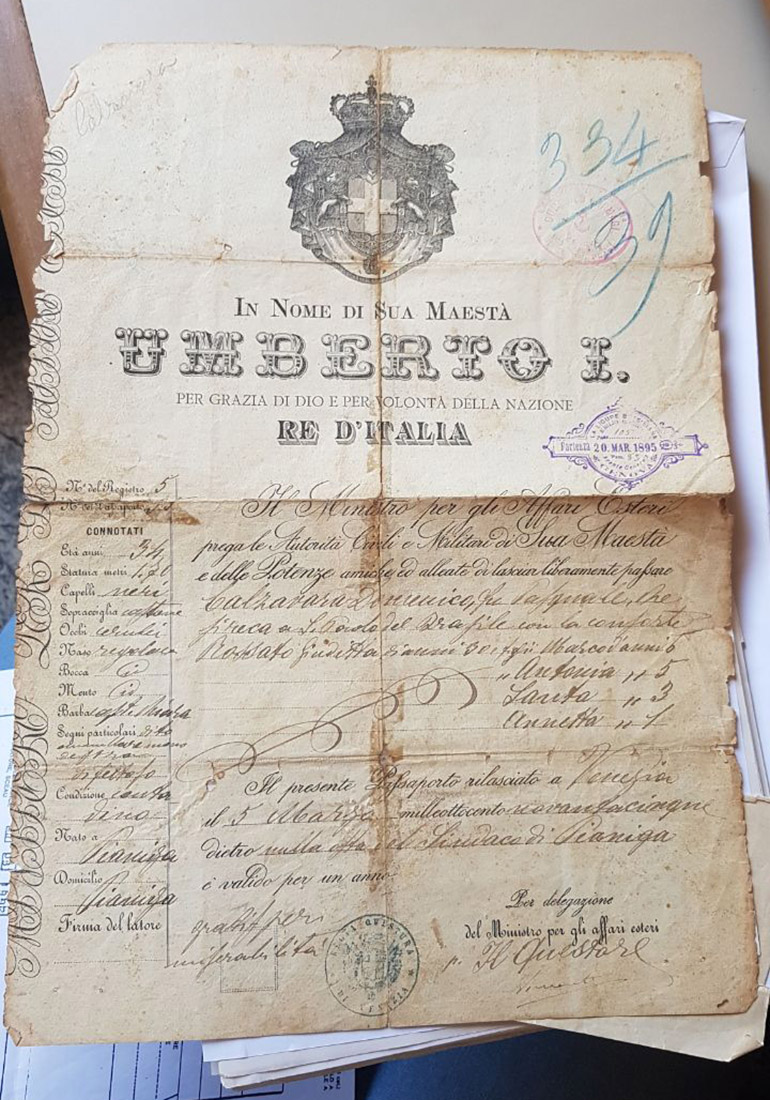 334/39
IN NOME DI SUA MAESTÀ
UMBERTO I.
PER GRAZIA DI DIO E PER VOLONTÀ DELLA NAZIONE
RE D'ITALIA
LA LIGURE
Partenza 20. MAR. 1895
GENOVA
N° del Registro 5
N° del Passaporto
CONNOTATI
Età anni 34
Statura metri 1,70
Capelli neri
Sopracciglia castane
Occhi cerulei
Naso regolare
Bocca id
Mento id
Barba cast
Segni particolari dito
mano
destra
difettoso
Condizione conta
dino
Nato a
Pianiga
Domicilio
Pianiga
Firma del latore
Il Ministro per gli Affari Esteri
prega le Autorità Civili e Militari di Sua Maestà
e delle Potenze amiche ed alleate di lasciar liberamente passare
Calzavara Domenico, fu Pasquale, che
si reca a S. Paolo del Brasile con la consorte
Rossato Giuditta d'anni 30 e figli Marco d'anni 6
" Antonia " 5
Santa " 3
Annetta " 1
Il presente Passaporto rilasciato a Venezia
il 5 Marzo milleottocento novantacinque
dietro nulla osta del Sindaco di Pianiga
è valido per un anno
gratis per
miserabilità
REGIA QUESTURA
DI VENEZIA
Per delegazione
del Ministro per gli affari esteri
p. Il Questore